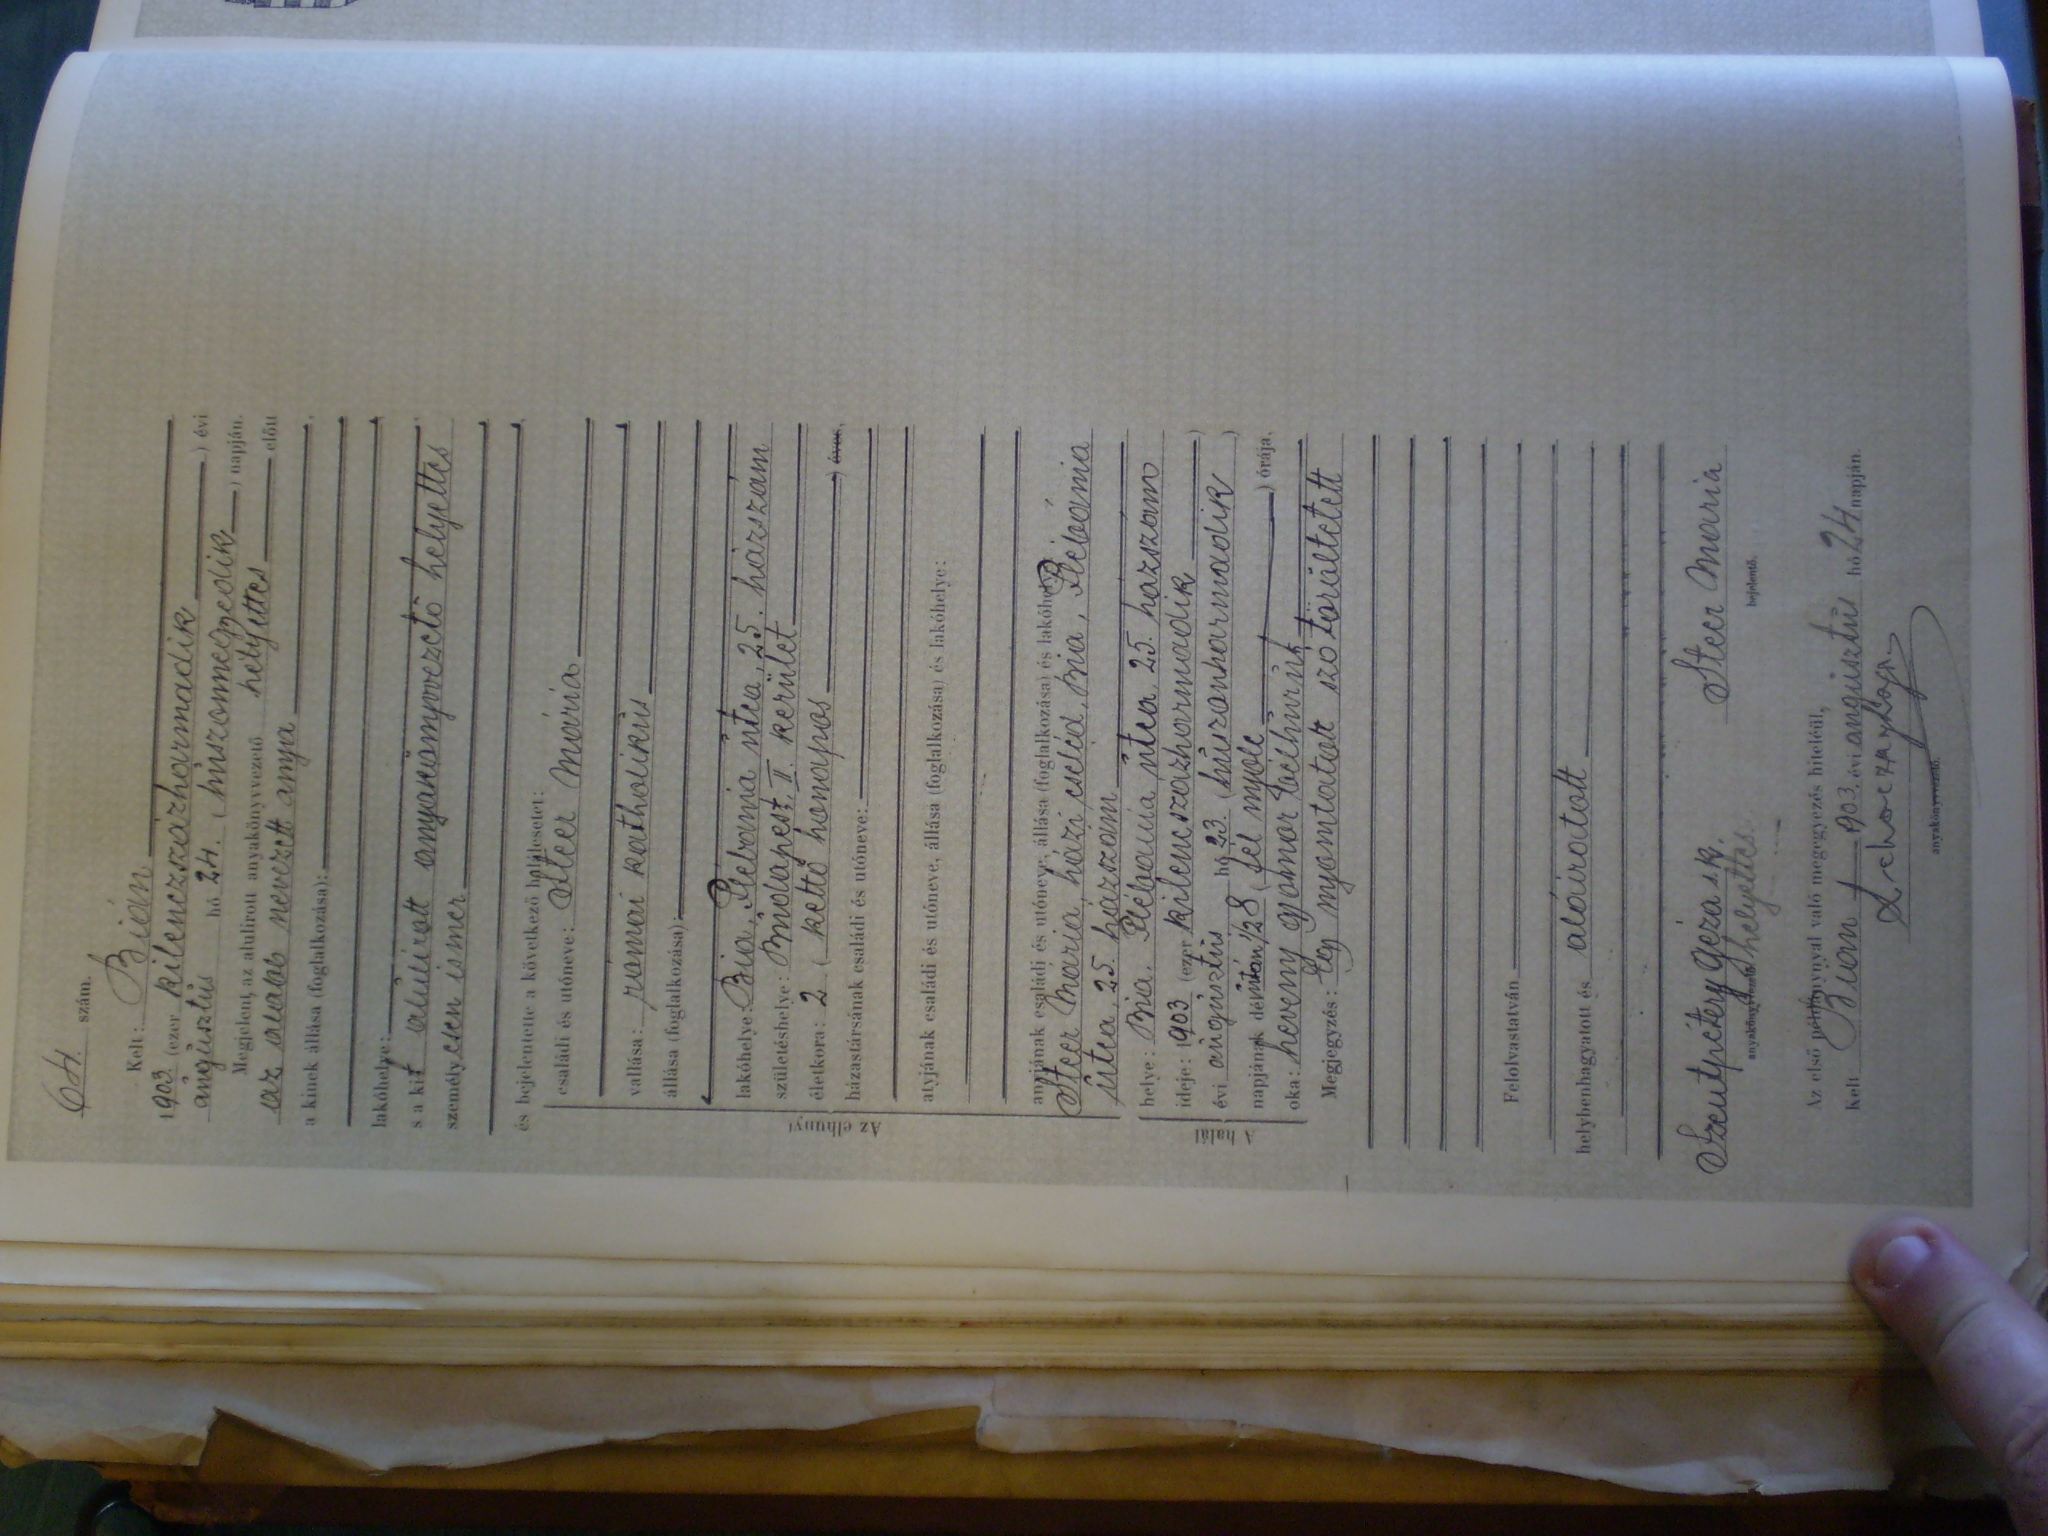 64. szám.
Kelt: Bián
1903 (ezer kilenczszázharmadik ) évi
augusztus hó 24. (huszonnegyedik ) napján.
Megjelent, az alulirott anyakönyvvezető helyettes előtt
az alább nevezett anya
a kinek állása (foglalkozása):
lakóhelye:
s a kit alúlirott anyakönyvvezető helyettes
személyesen ismer
és bejelentette a következő halálesetet:
Az elhunyt
családi és utóneve: Steer Mária
vallása: római katholikus
állása (foglalkozása):
lakóhelye: Bia, Plébánia utca, 25. házszám
születéshelye: Budapest. II. kerület
életkora: 2 (kettő hónapos ) éves,
házastársának családi és utóneve:
atyjának családi és utóneve, állása (foglalkozása) és lakóhelye:
anyjának családi és utóneve, állása (foglalkozása) és lakóhelye:
Steer Mária házi cseléd, Bia, Plébánia
utca, 25. házszám
A halál
helye: Bia. Plébánia utca 25. házszám
ideje: 1903 (ezer kilencszázharmadik )
évi augusztus hó 23. (huszonharmadik )
napjának délután 1/2 8 (fél nyolc ) órája,
oka: heveny gyomor bélhurut
Megjegyzés: Egy nyomtatott szó törültetett
Felolvastatván
helybenhagyatott és aláiratott
Szentpétery Géza s.k. Steer Mária
anyakönyvvezető helyettes. bejelentő.
Az első példánynyal való megegyezés hiteléül,
Kelt Bián 1903. évi augusztus hó 24 napján.
anyakönyvvezető.